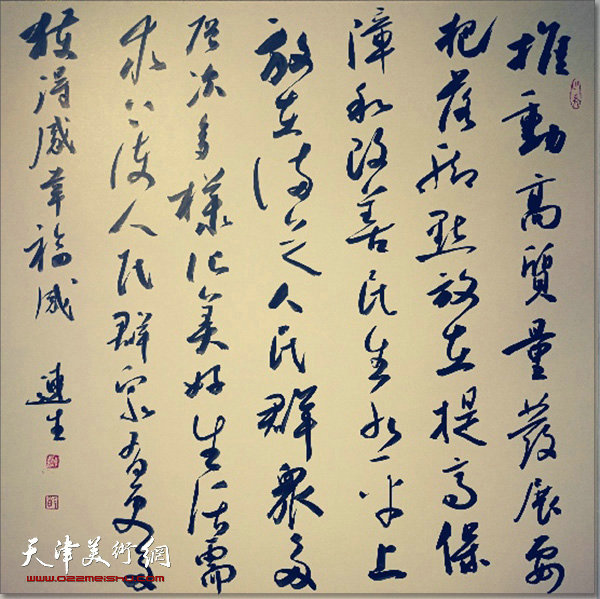 推動高質量發展要
把落腳點放在提高保
障和改善民生水平上
放在滿足人民群眾多
層次多樣化美好生活需
求上使人民群眾有更多
獲得感幸福感
連生
天津美術網
www.022meishu.com